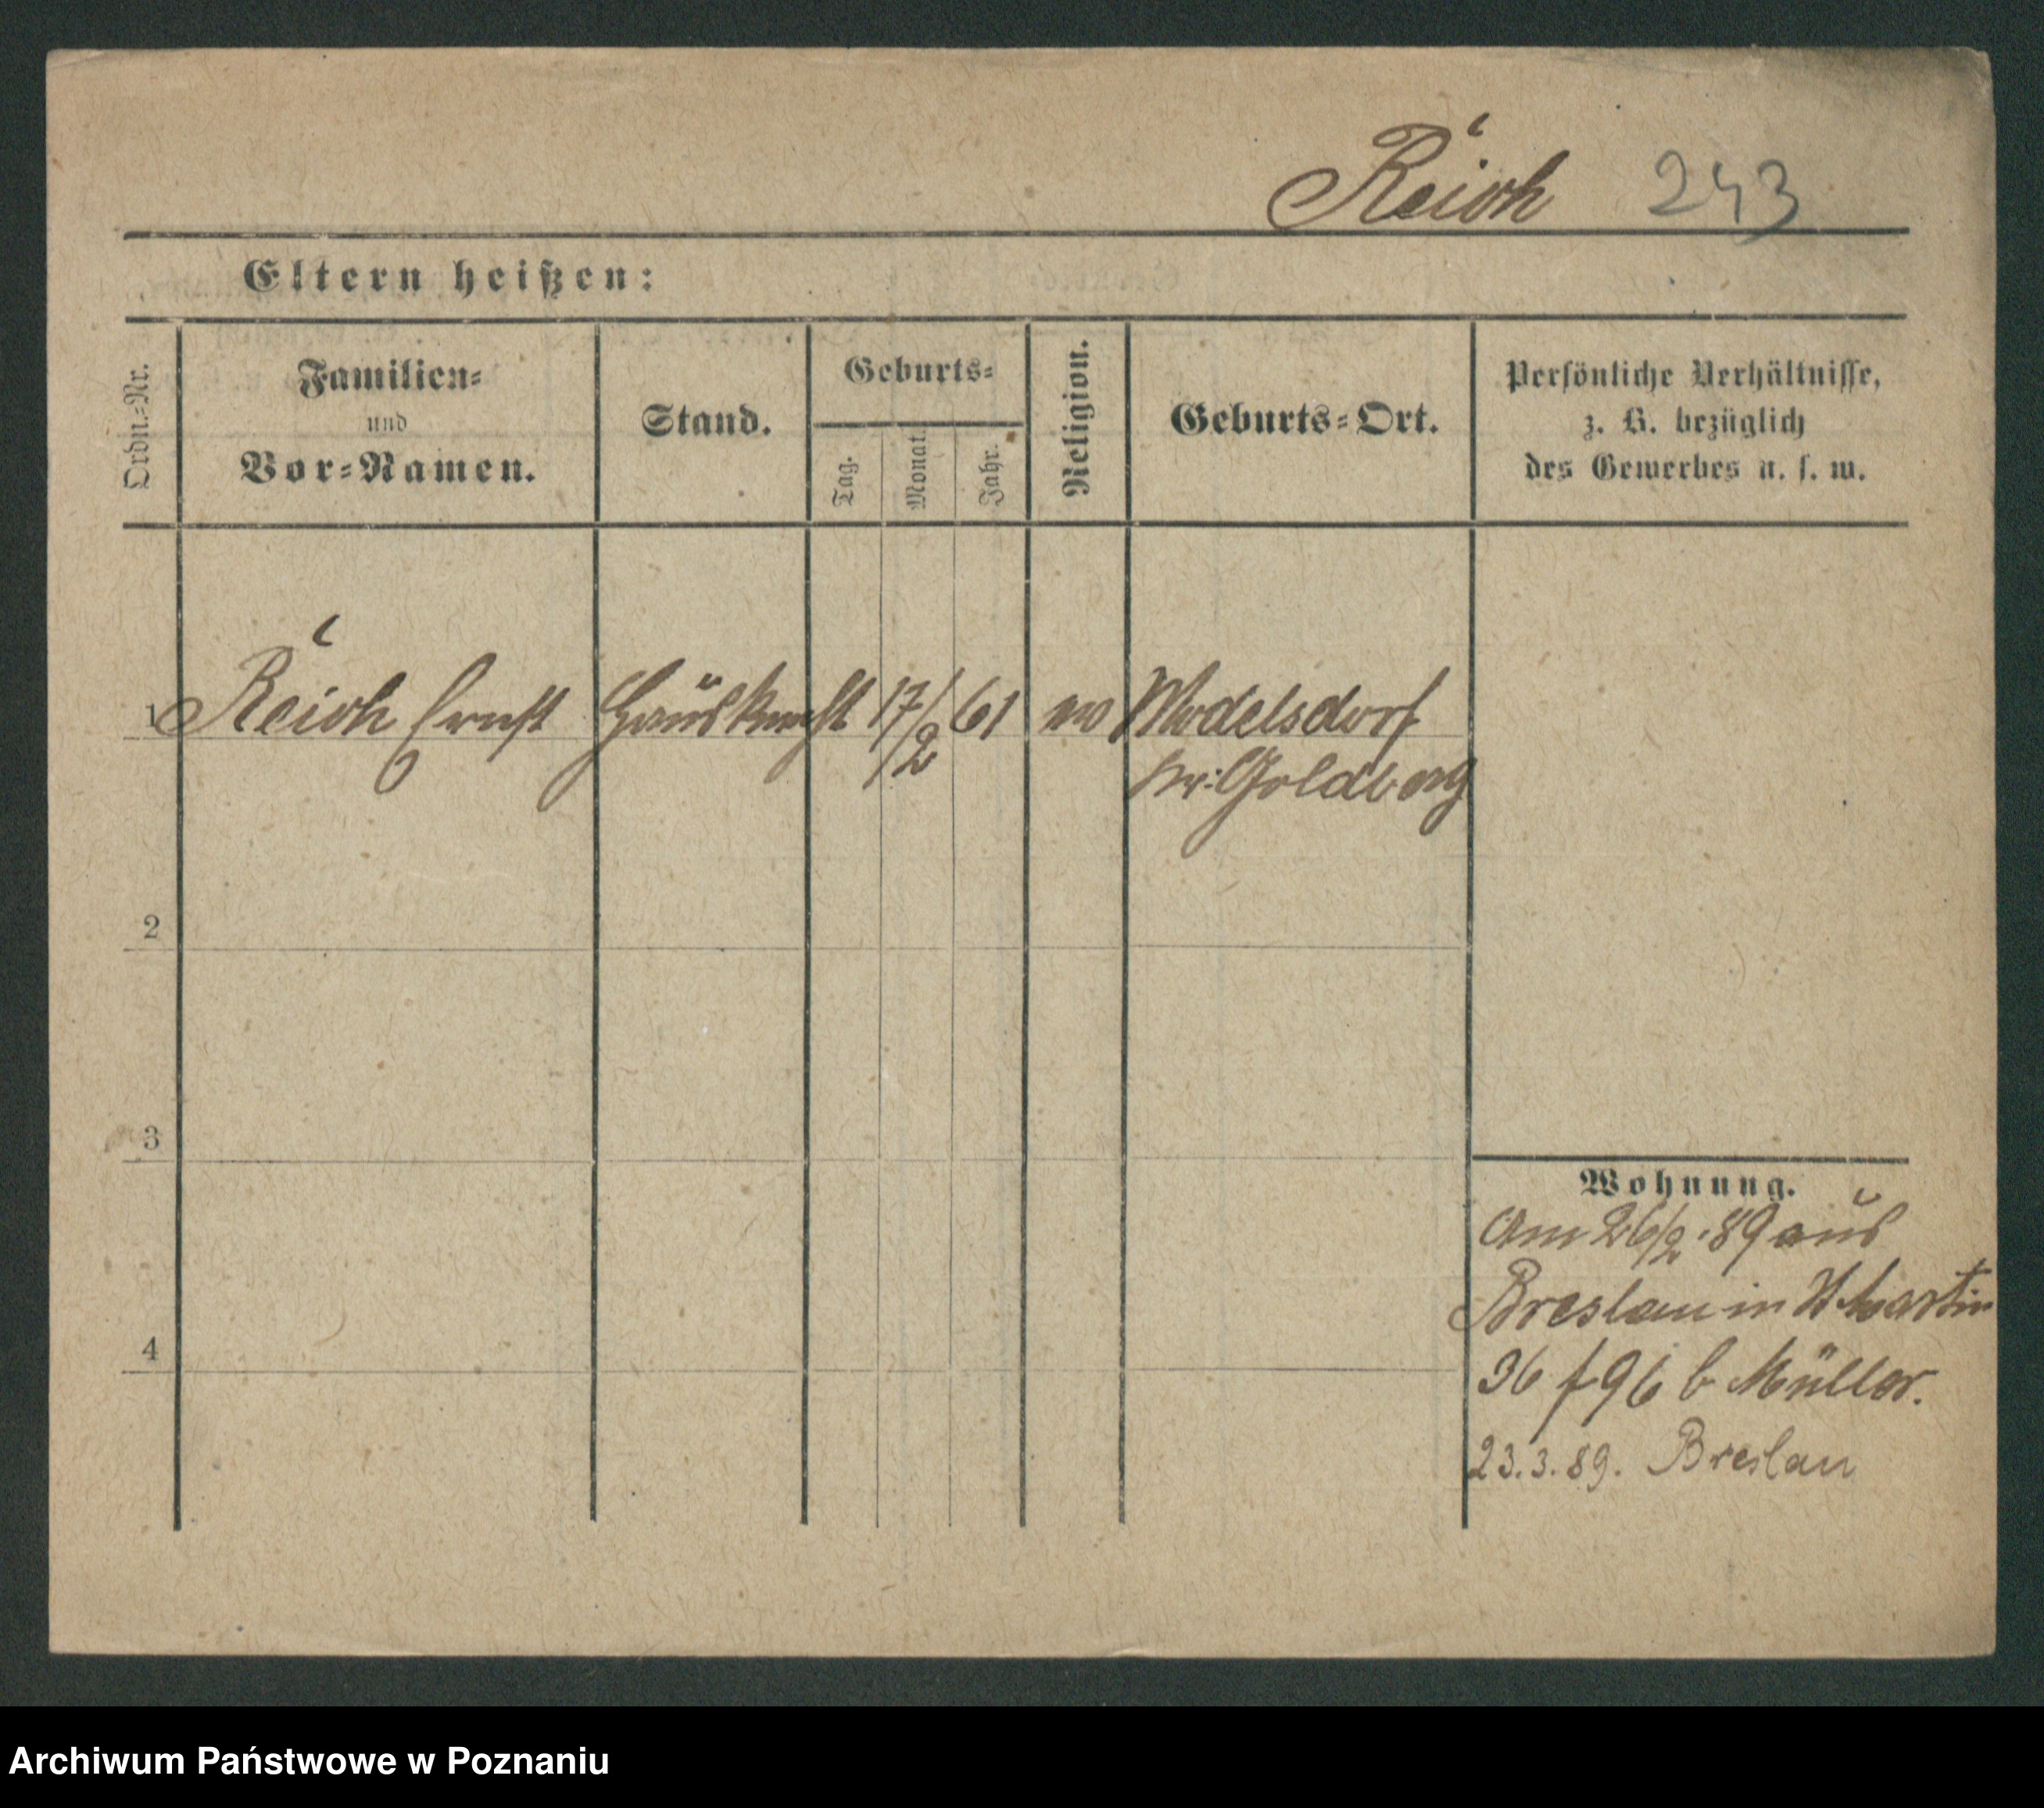 Reich 243
Eltern heißen:
Ordn.=Nr.
Familien=
und
Vor=Namen.
Stand.
Geburts=
Tag.
Monat.
Jahr.
Religion.
Geburts=Ort.
Persönliche Verhältnisse,
z. B. bezüglich
des Gewerbes u. s. w.
1 Reich Ernst Hausknecht 17/2 61 ev Modelsdorf
Kr: Goldberg
2
3
4
Wohnung.
Am 26/2 89 aus
Breslau in St Martin
36 f 96 b Müller.
23. 3. 89. Breslau
Archiwum Państwowe w Poznaniu